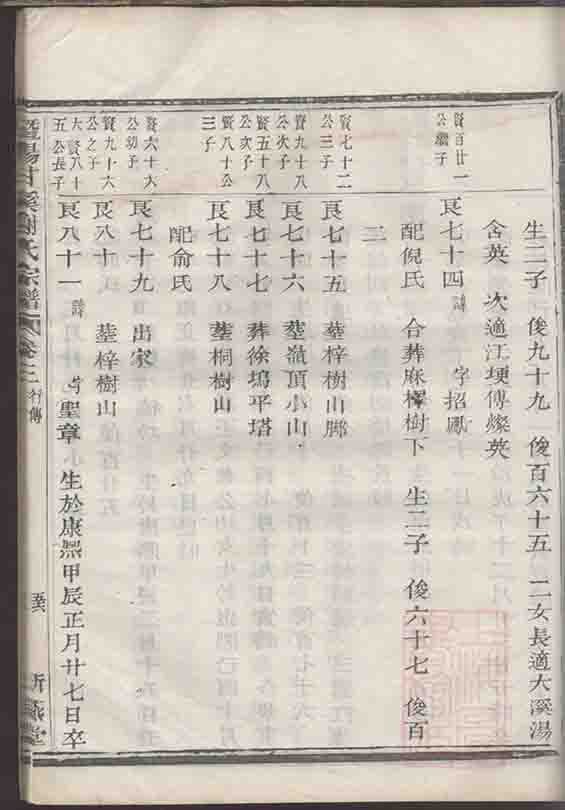 生二子 俊九十九 俊百六十五 二女長適大溪湯
含英 次適江埂傅燦英
賢百廿一
公繼子
良七十四 諱 字招鳳
配倪氏 合葬麻樹下 生二子 俊六十七 俊百
三
賢七十二
公三子
良七十五 塟梓樹山脚
賢九十八
公次子
良七十六 塟頂小山
賢五十八
公次子
良七十七 葬徐塢平塔
賢八十公
三子
良七十八 塟桐樹山
配俞氏
賢六十六
公幼子
良七十九 出家
賢九十六
公之子
良八十 塟梓樹山
大賢八十
五公長子
良八十一 諱 字聖章 生於康熙甲辰正月廿七日卒
暨陽甘溪謝氏宗譜 卷二 行傳